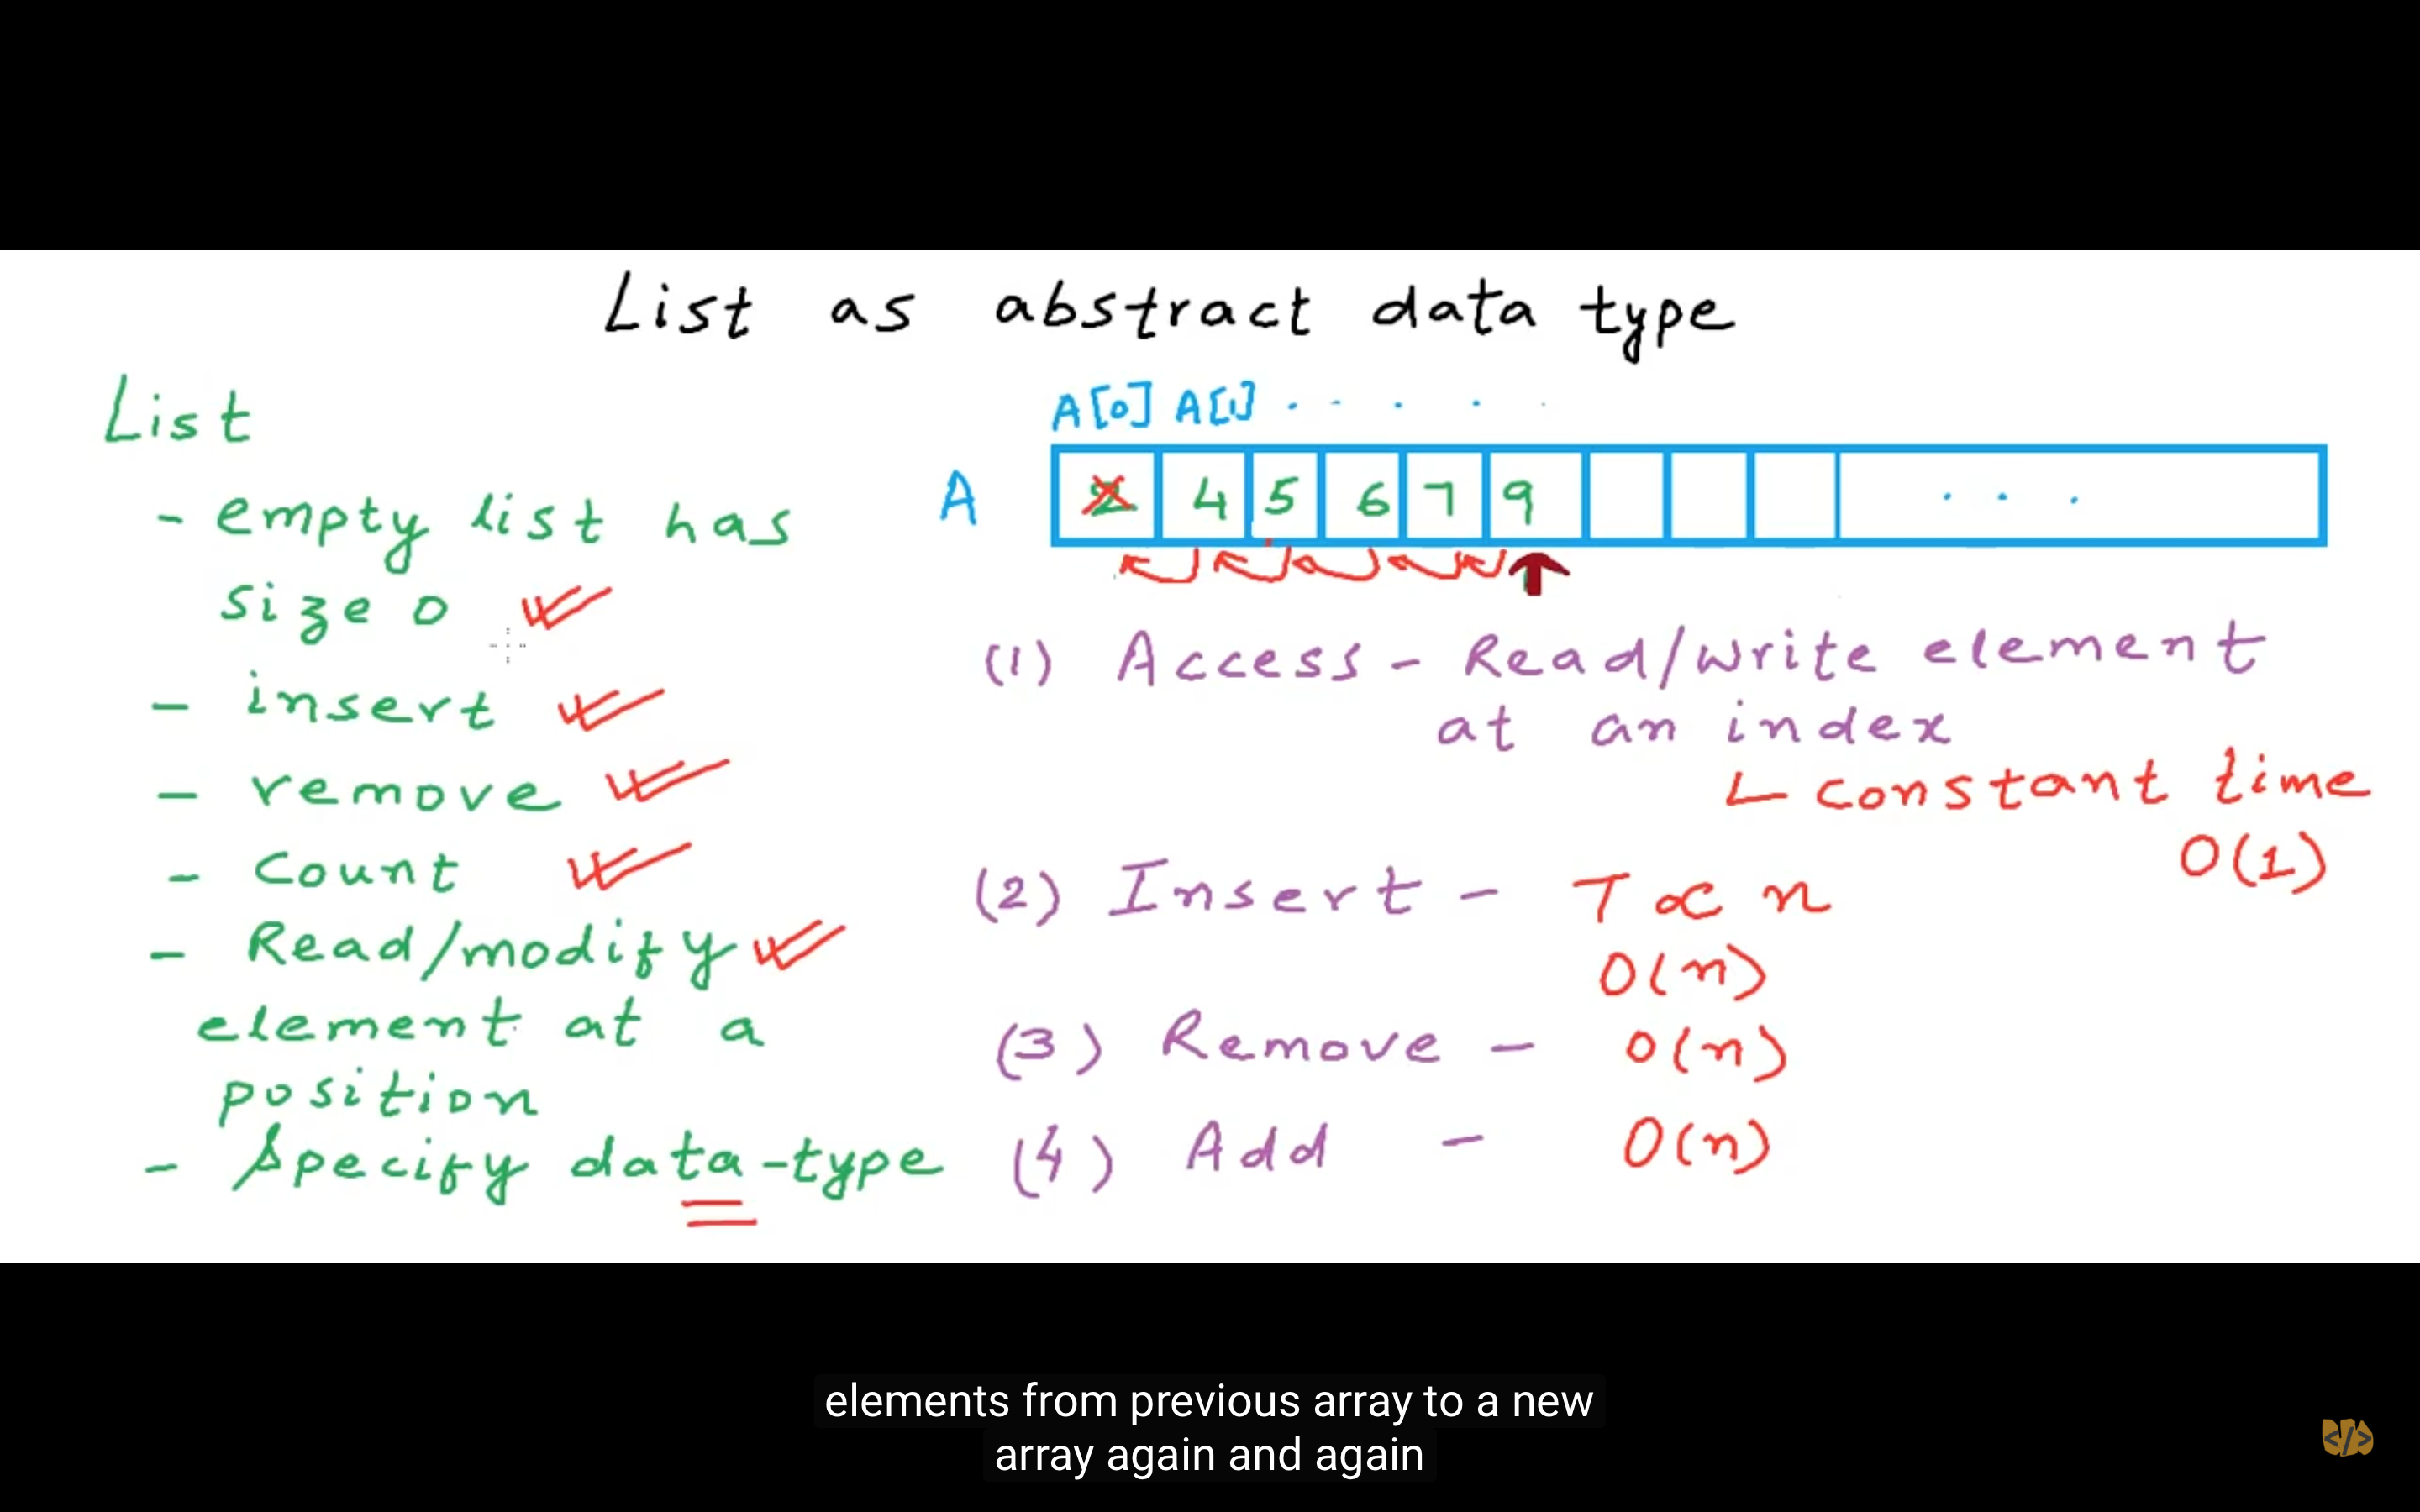 List as abstract data type
List
- empty list has
size 0
- insert
- remove
- Count
- Read/modify
element at a
position
- Specify data-type
A[0] A[1] . . . . .
A 2 4 5 6 7 9 . . .
(1) Access - Read/Write element
at an index
constant time
O(1)
(2) Insert - T ∝ n
O(n)
(3) Remove - O(n)
(4) Add - O(n)
elements from previous array to a new
array again and again